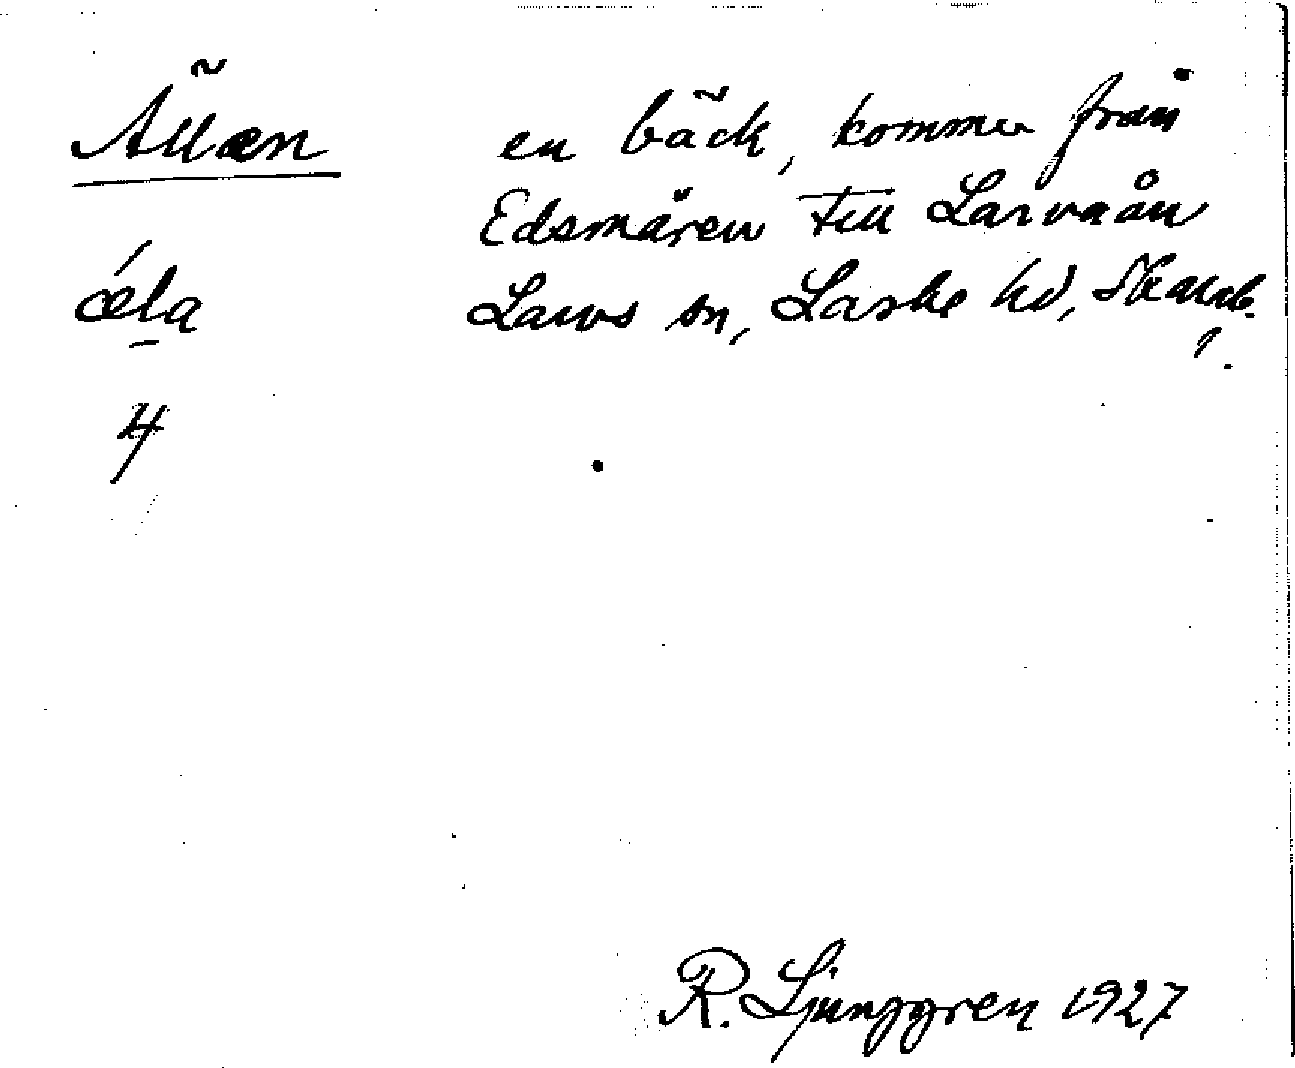 Ällæn en bäck, kommer från
Edsmären till Larvaån
ǽla Larvs sn, Laske hd, Skarab.
l.
4
R. Ljunggren 1927